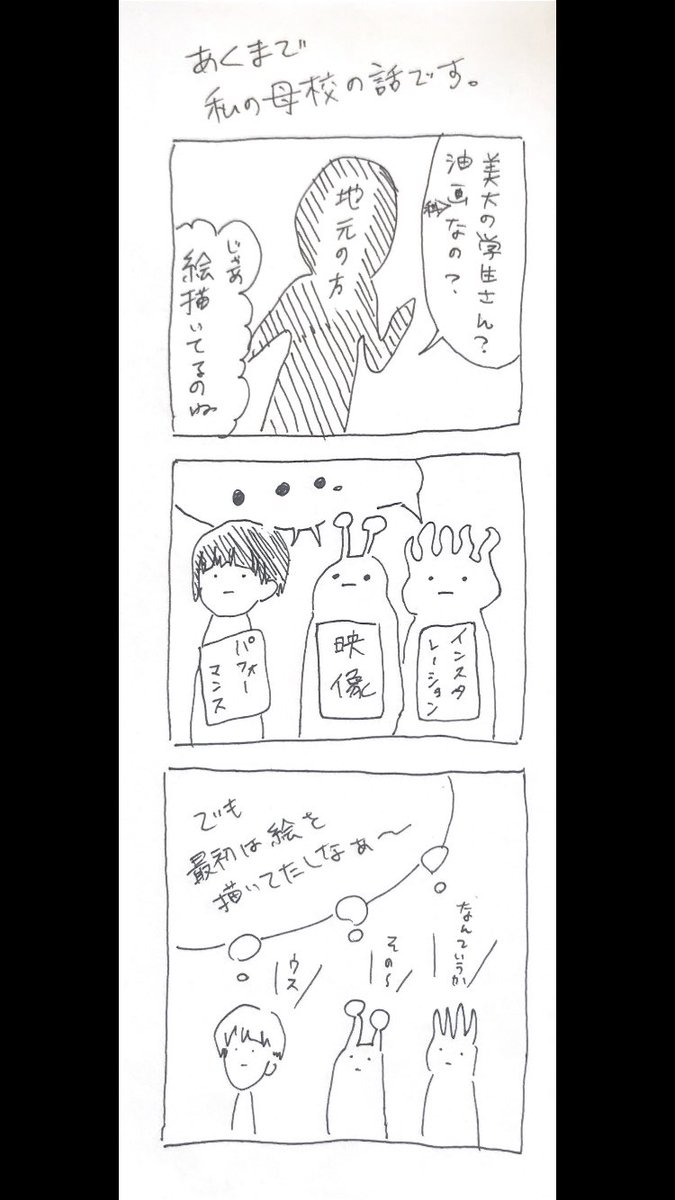 あくまで
私の母校の話です。
美大の学生さん?
油画科なの?
地元の方
じゃあ
絵描いてるのね
・・・。
インスタ
レーション
映像
パフォー
マンス
でも
最初は絵を
描いてたしなぁ〜
なんていうか
その〜
ウス